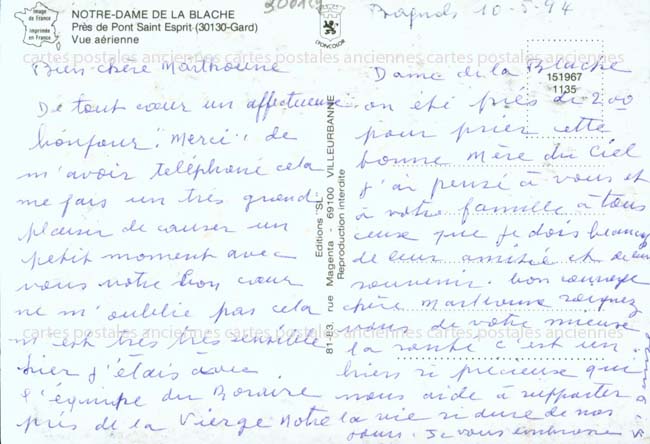 Image de France
Imprimée en France
NOTRE-DAME DE LA BLACHE
Près de Pont Saint Esprit (30130-Gard)
Vue aérienne
LYONCOLOR
Bagnols 10-5-94
Bien chère Marthoune
De tout cœur un affectueuse
bonjour. Merci, de
m'avoir téléphoné cela
me fais un très grand
plaisir de causer un
petit moment avec
vous votre bon cœur
ne m'oublie pas cela
m'est très très sensible
hier j'étais avec
l'équipe du
près de la Vierge Notre
Editions "SL"
81-83, rue Magenta - 69100 VILLEURBANNE
Reproduction interdite
151967
1135
Dame de la Blache
on été près de 200
pour prier cette
bonne Mère du Ciel
j'ai pensé à vous et
à votre famille à tous
ceux que je dois beaucoup
de leur amitié et de leur
souvenir. bon courage
chère Marthoune soignez
vous de votre mieux
la santé c'est un
bien si précieuse qui
nous aide à supporter
la vie si dure de nos
jours. Je vous embrasse
cartes postales anciennes cartes postales anciennes cartes postales anciennes
cartes postales anciennes cartes postales anciennes cartes postales anciennes